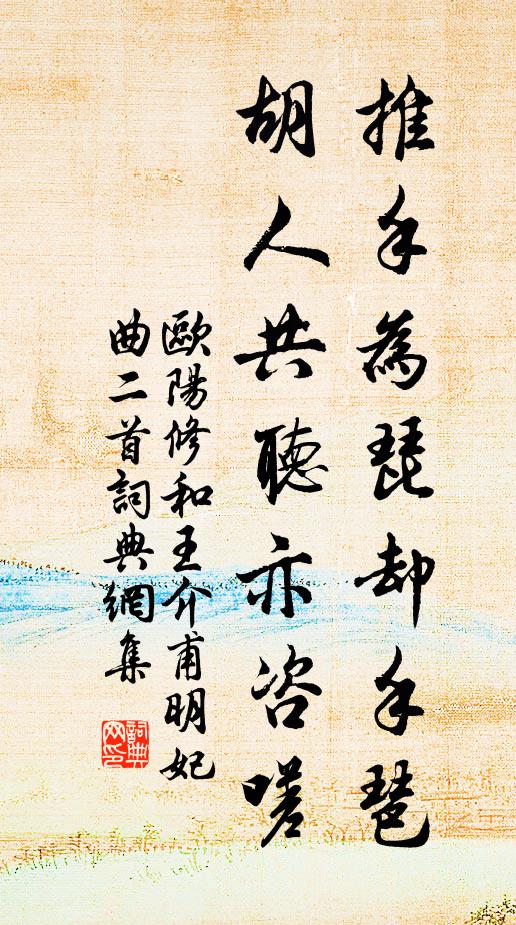 推手為琵却手琶
胡人共聽亦咨嗟
歐陽修和王介甫明妃
曲二首詞典網集
詞典
网印